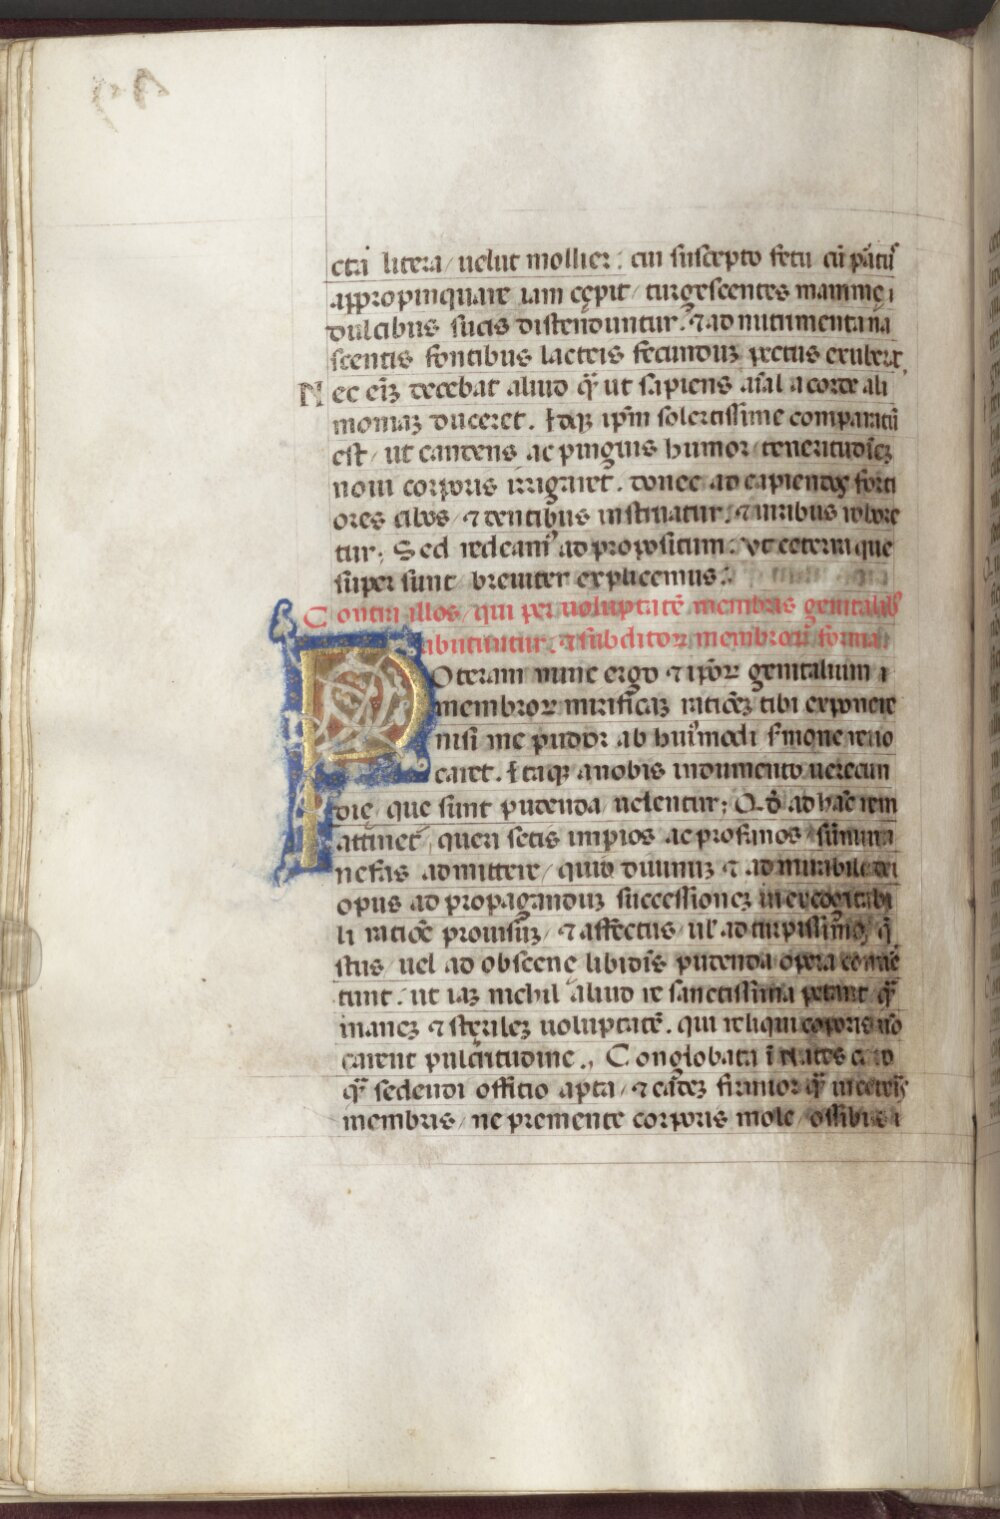 cta litera / uelut mollier : cui suscepto fetu cũ ptus
appropinquare iam cępit / turgescentes mammę i
dulcibus sucis distenduntur . ⁊ ad nutrimenta na
scentis fontibus lacteis fecunduꝫ pectus exuberat
Nec eīꝫ decebat aliud q̃ ut sapiens aīal a corde ali
moniaꝫ duceret . Idqꝫ ip̃m solertissime comparatũ
est / ut candens ac pinguis humor / teneritudīeꝫ
noui corporis irrigaret . donec ad capiendos forti
ores cibos / ⁊ dentibus instruatur . ⁊ uiribus robore
tur ; Sed redeam⁹ ad propositum . ut cetera que
super sunt / breuiter explicemus :
Contra illos / qui per uoluptatē membris genitalib⁹
abutuntur . ⁊ subditoꝝ membroꝝ forma
Poteram nunc ergo ⁊ ip̃oꝝ genitalium i
membroꝝ mirificaꝫ ratiōeꝫ tibi exponere
nisi me pudor ab hui⁹modi s̃mone reuo
caret . Itaqꝫ a nobis indumento uerecun
dię / que sunt pudenda / uelentur ; Q d̃ ad hãc rem
attinet / queri setis impios ac profanos / sũmum
nefas admittere / quid diuinuꝫ ⁊ admirabile dei
opus ad propaganduꝫ successioneꝫ inexcogitabi
li ratiōe prouisuꝫ / ⁊ affectus / ul̃ ad turpissimos q̃
stus / uel ad obscenę libidīs pudenda opera cōuer
tunt . ut iaꝫ nichil aliud re sanctissima petant q̃
inaneꝫ ⁊ sterileꝫ uoluptatē . qui reliqui corporis
carent pulcritudine ., Conglobata ī nates caro
q̃ sedendi offitio apta / ⁊ eãdeꝫ firmior q̃ in ceteris
membris / ne premente corporis mole / ossibus i